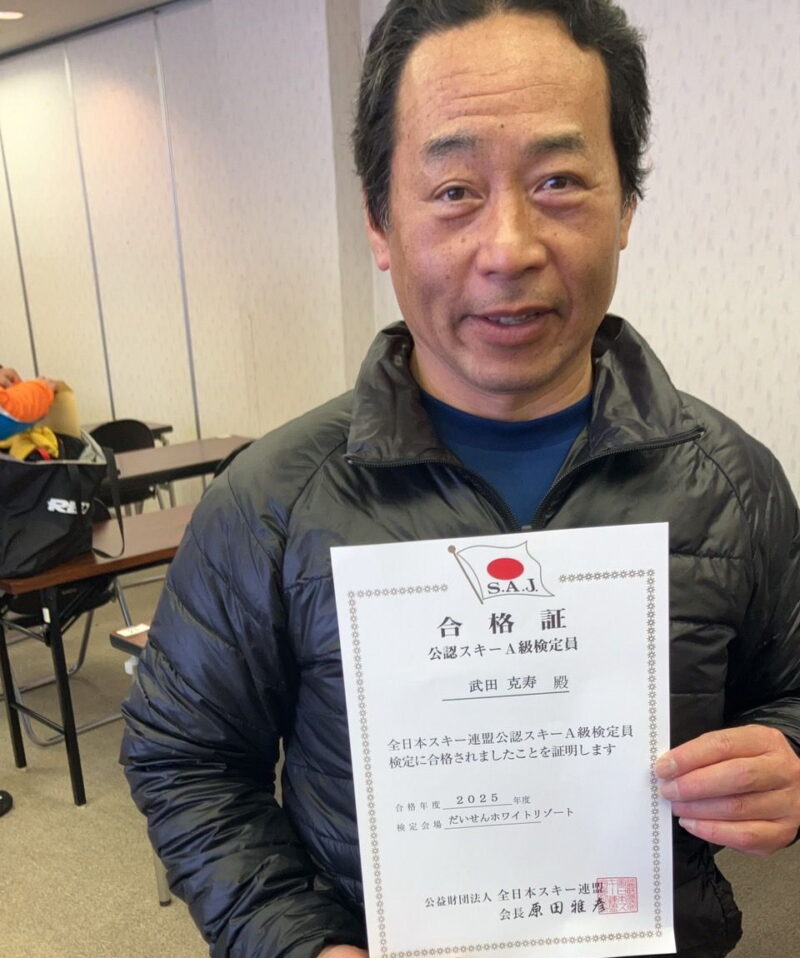 S.A.J.
合格証
公認スキーA級検定員
武田 克寿 殿
全日本スキー連盟公認スキーA級検定員
検定に合格されましたことを証明します
合格年度 2025 年度
検定会場 だいせんホワイトリゾート
公益財団法人 全日本スキー連盟
会長 原田雅彦